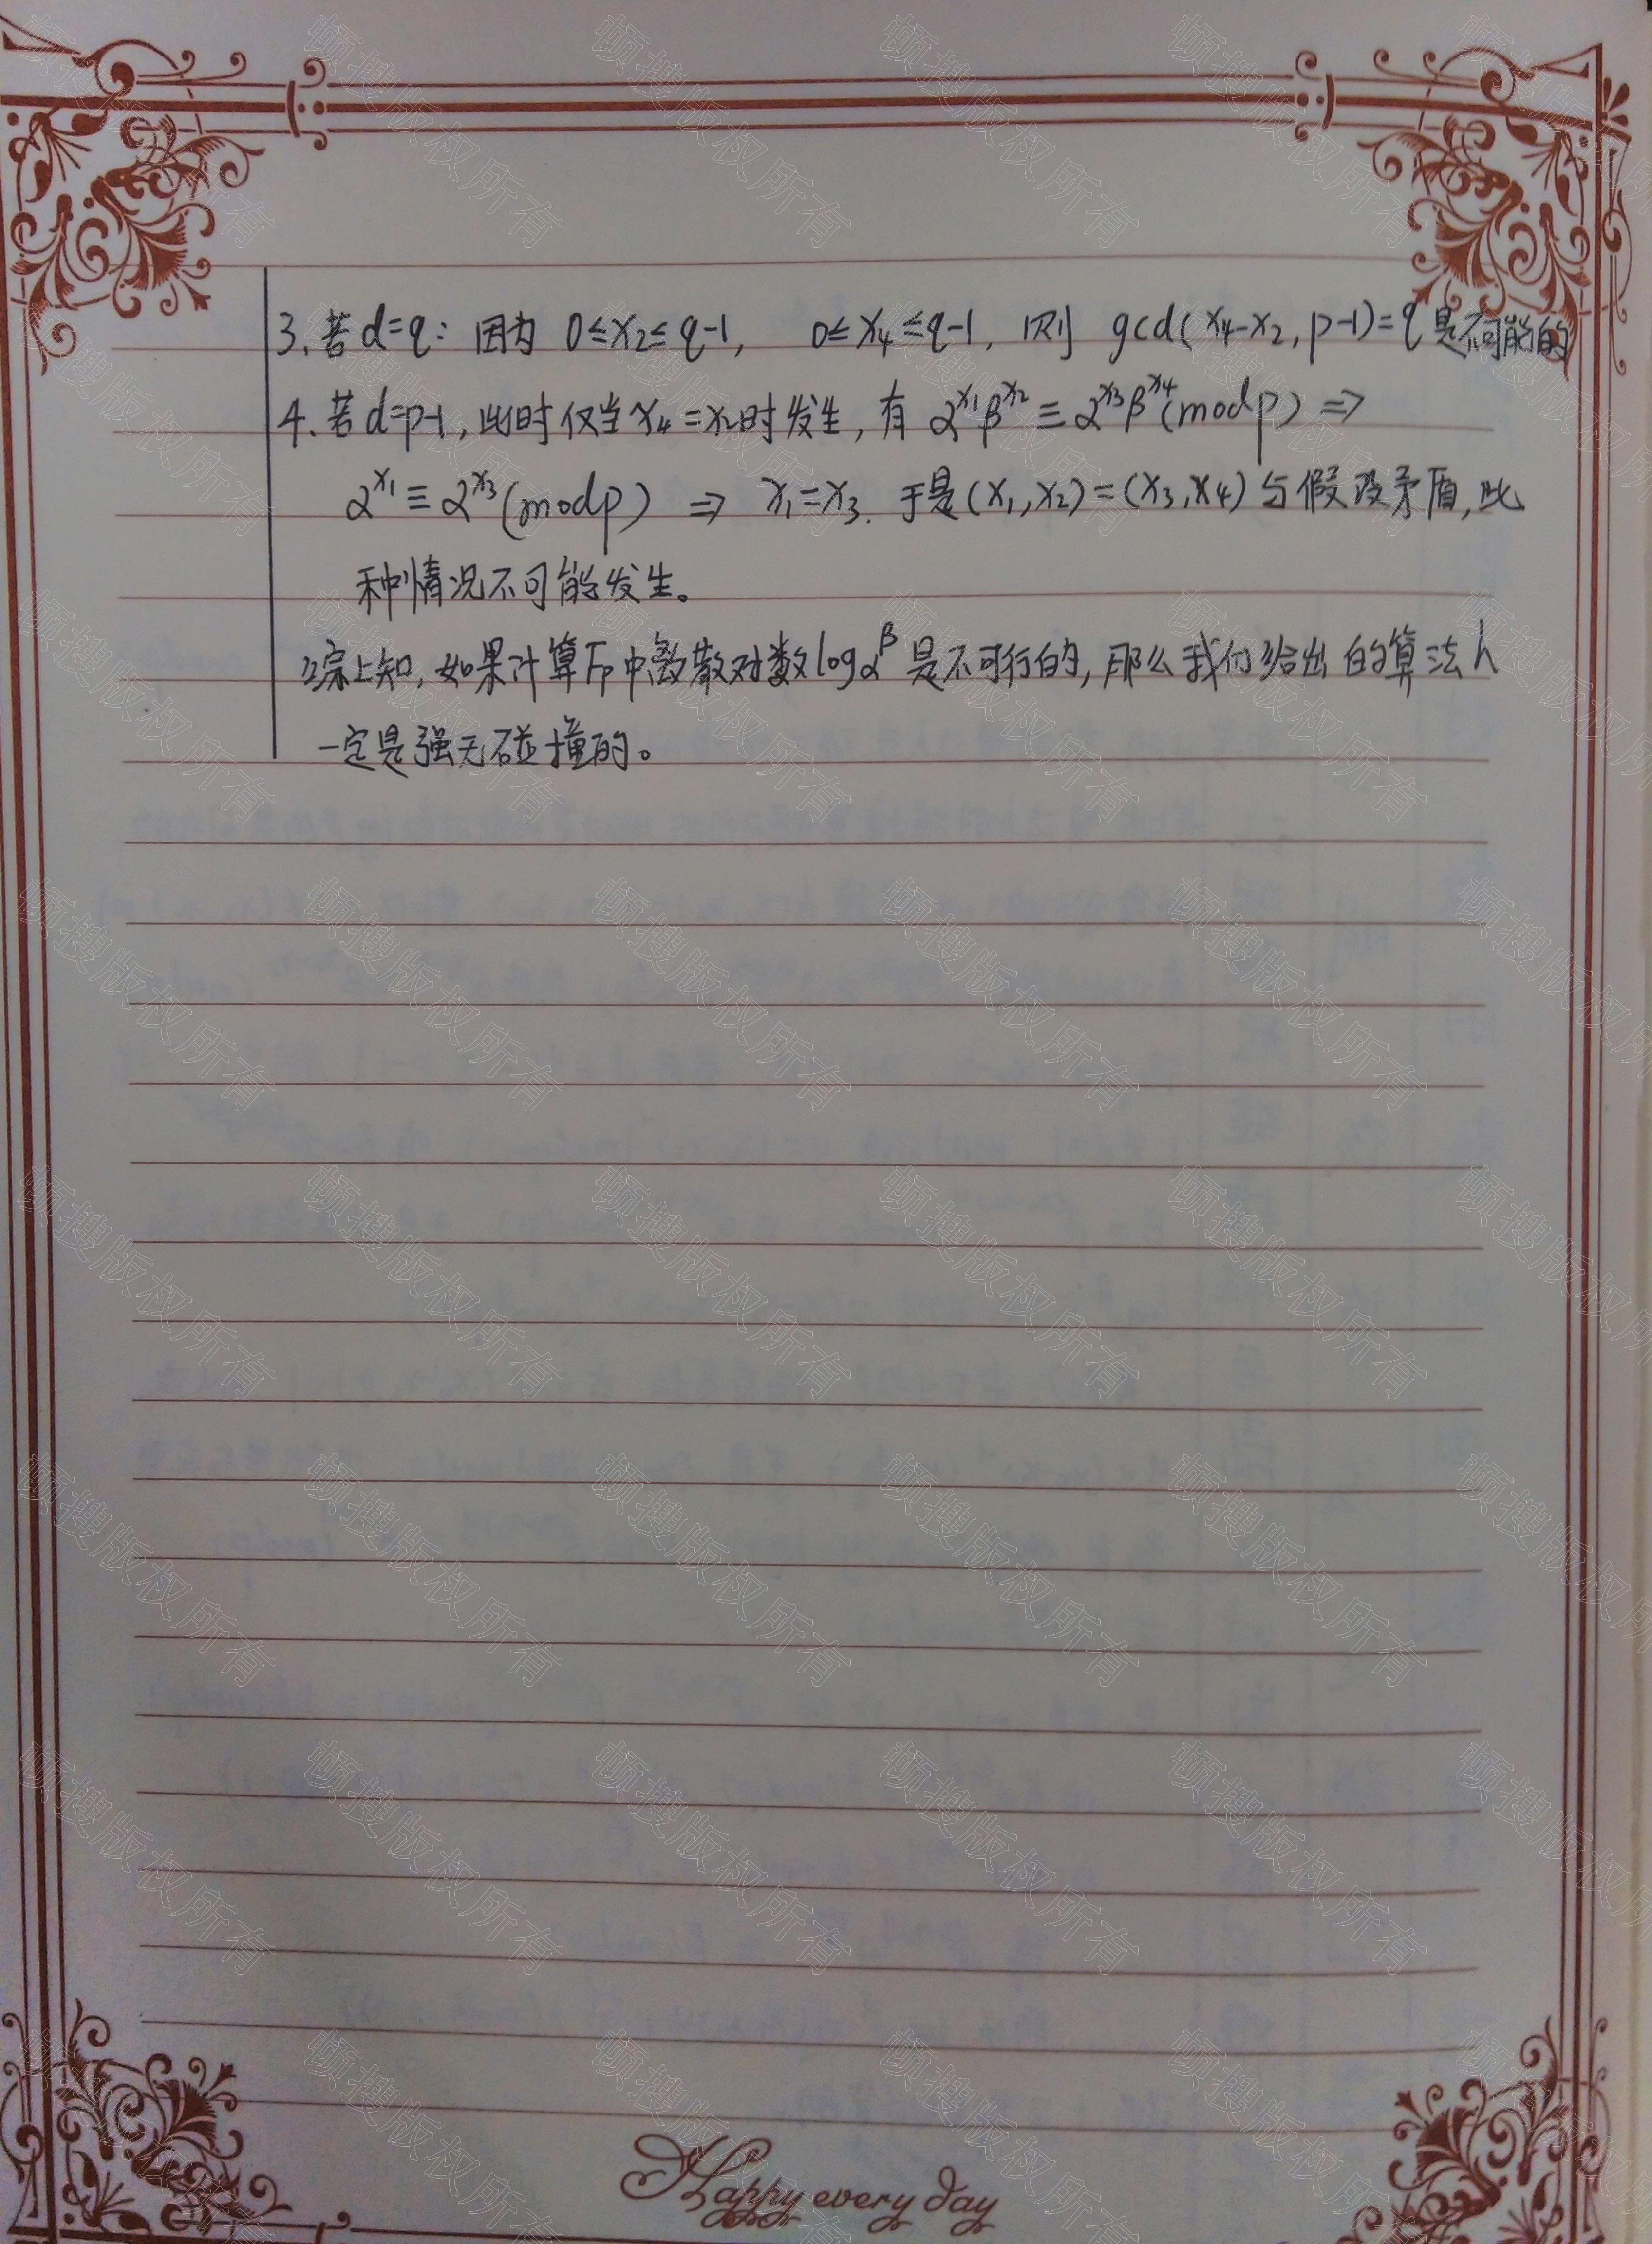 3. 若d=q: 因为 0≤x₂≤q-1, 0≤x₄≤q-1, 则 gcd(x₄-x₂, p-1)=q 是不可能的
4. 若d=p-1, 此时仅当x₄=x₂时发生, 有 α^x₁β^x₂≡α^x₃β^x₄(mod p) ⇒
α^x₁≡α^x₃(mod p) ⇒ x₁=x₃. 于是(x₁,x₂)=(x₃,x₄)与假设矛盾,此
种情况不可能发生。
综上知, 如果计算Fp中离散对数logα^β 是不可行的, 那么我们给出的算法h
一定是强无碰撞的。
Happy every day
顿搜版权所有